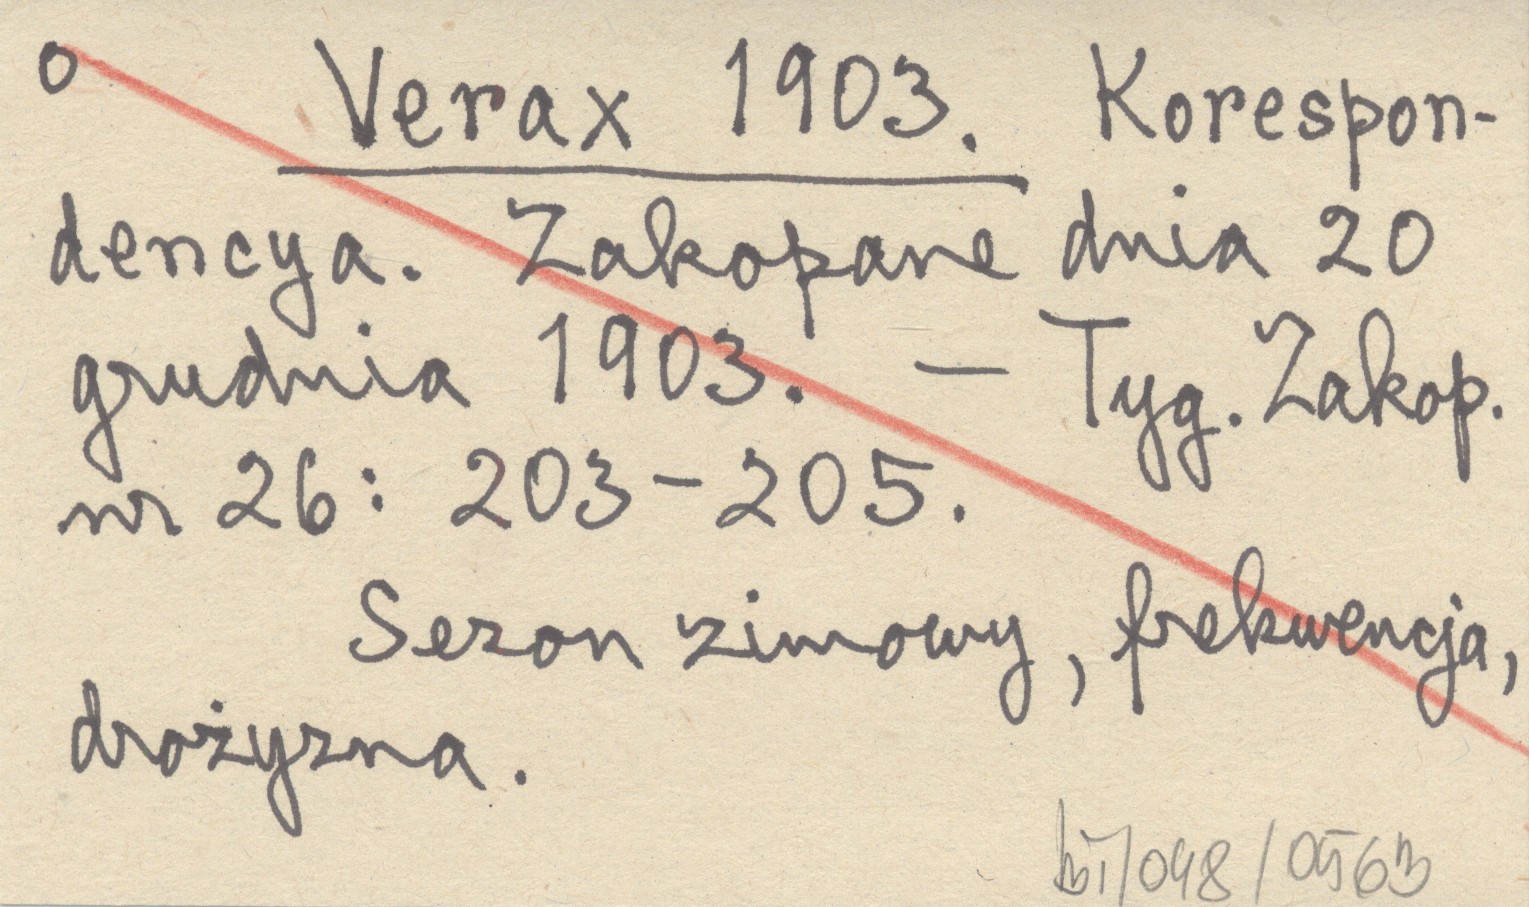 o Verax 1903. Korespon-
dencya. Zakopane dnia 20
grudnia 1903. — Tyg. Zakop.
nr 26: 203-205.
Sezon zimowy, frekwencja,
drożyzna.
/048/0563